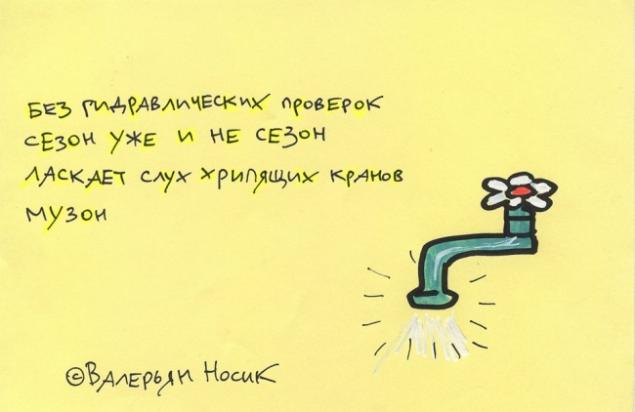 БЕЗ ГИДРАВЛИЧЕСКИХ ПРОВЕРОК
СЕЗОН УЖЕ И НЕ СЕЗОН
ЛАСКАЕТ СЛУХ ХРИПЯЩИХ КРАНОВ
МУЗОН
©ВАЛЕРЬЯН НОСИК